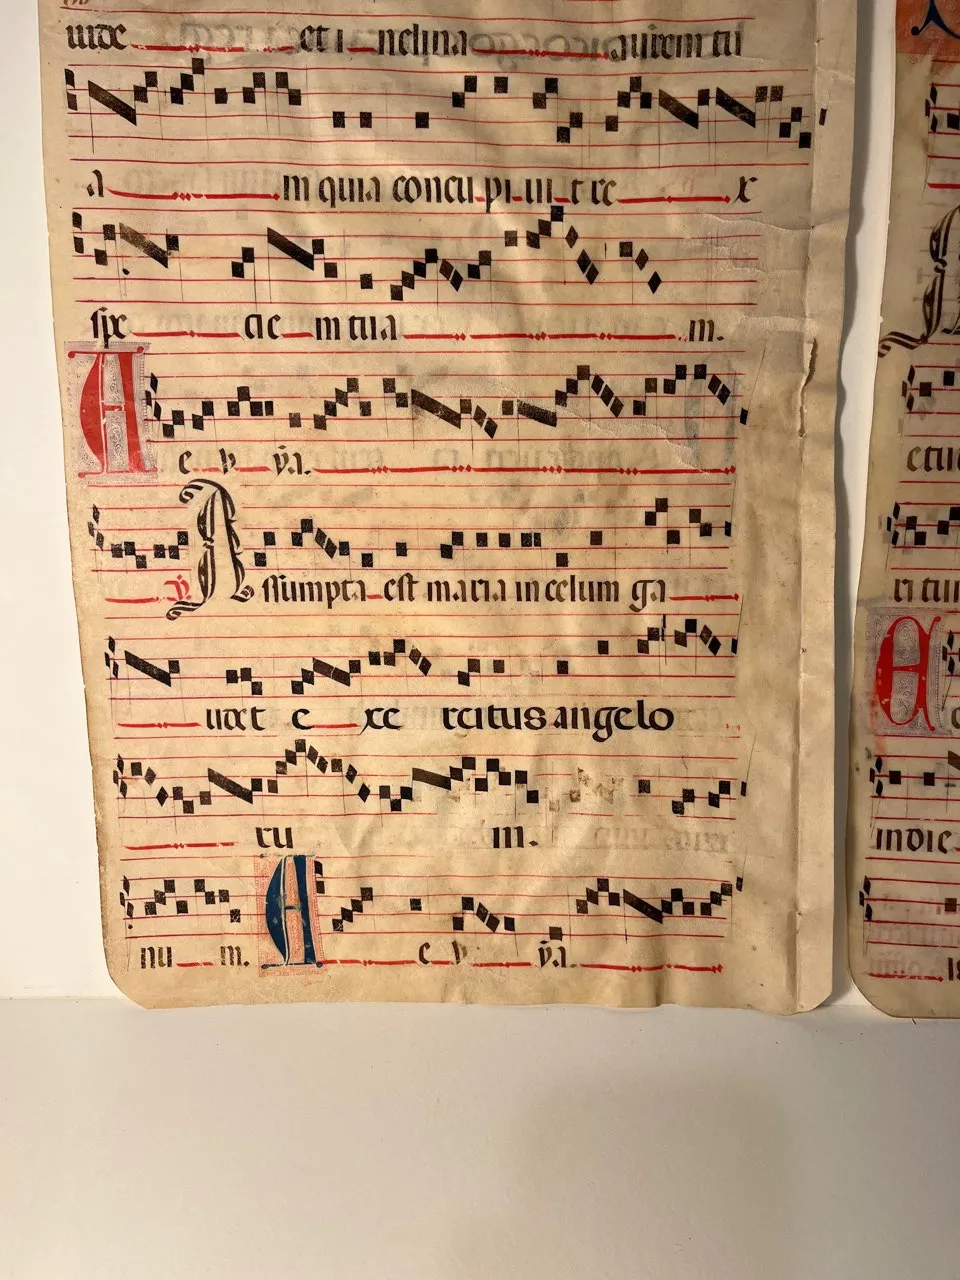 uide et i nclina aurem tu
a m quia concu pi ui t re x
spe cie m tua m.
A e v ya.
℣ Assumpta est maria in celum ga
udet e xe rcitus angelo
ru m.
nu m. A e v ya.
etu
ri tu
A
indie